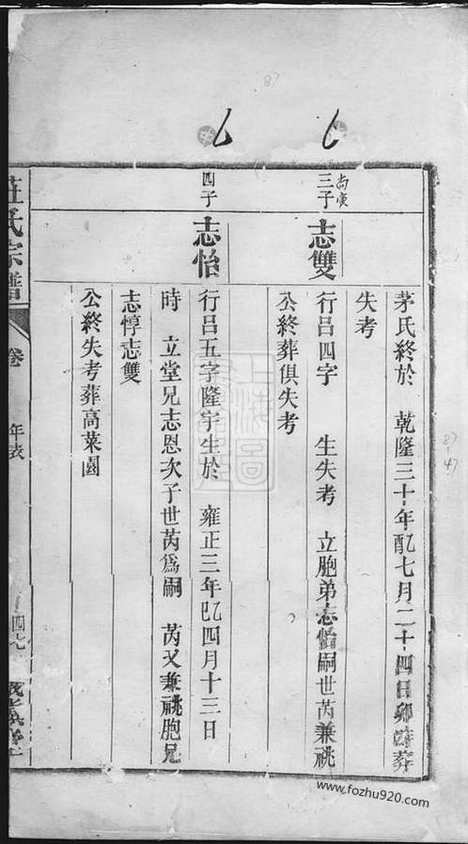 茅氏終於　乾隆三十年配七月二十四日卯時葬
失考
尚賓
三子
志雙
行呂四字　生失考　立胞弟志怡嗣世芮兼祧
公終葬俱失考
四子
志怡
行呂五字隆宇生於　雍正三年巳四月十三日
時　立堂兄志恩次子世芮爲嗣　芮又兼祧胞兄
志惇志雙
公終失考葬高菜園
莊氏宗譜
卷
年表
四九
www.fozhu920.com